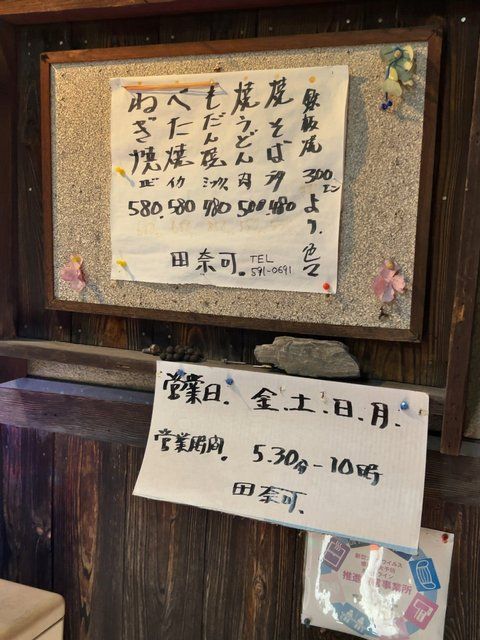 鉄板焼 300エンより、色々
焼そば ブタ 480
焼うどん 肉 500
もだん焼 ミックス 980
べた焼 イカ 580
ねぎ焼 エビ 580
田奈可.
TEL
591-0691
営業日. 金.土.日.月.
営業時間. 5.30分-10時
田奈可.
推進宣言事業所